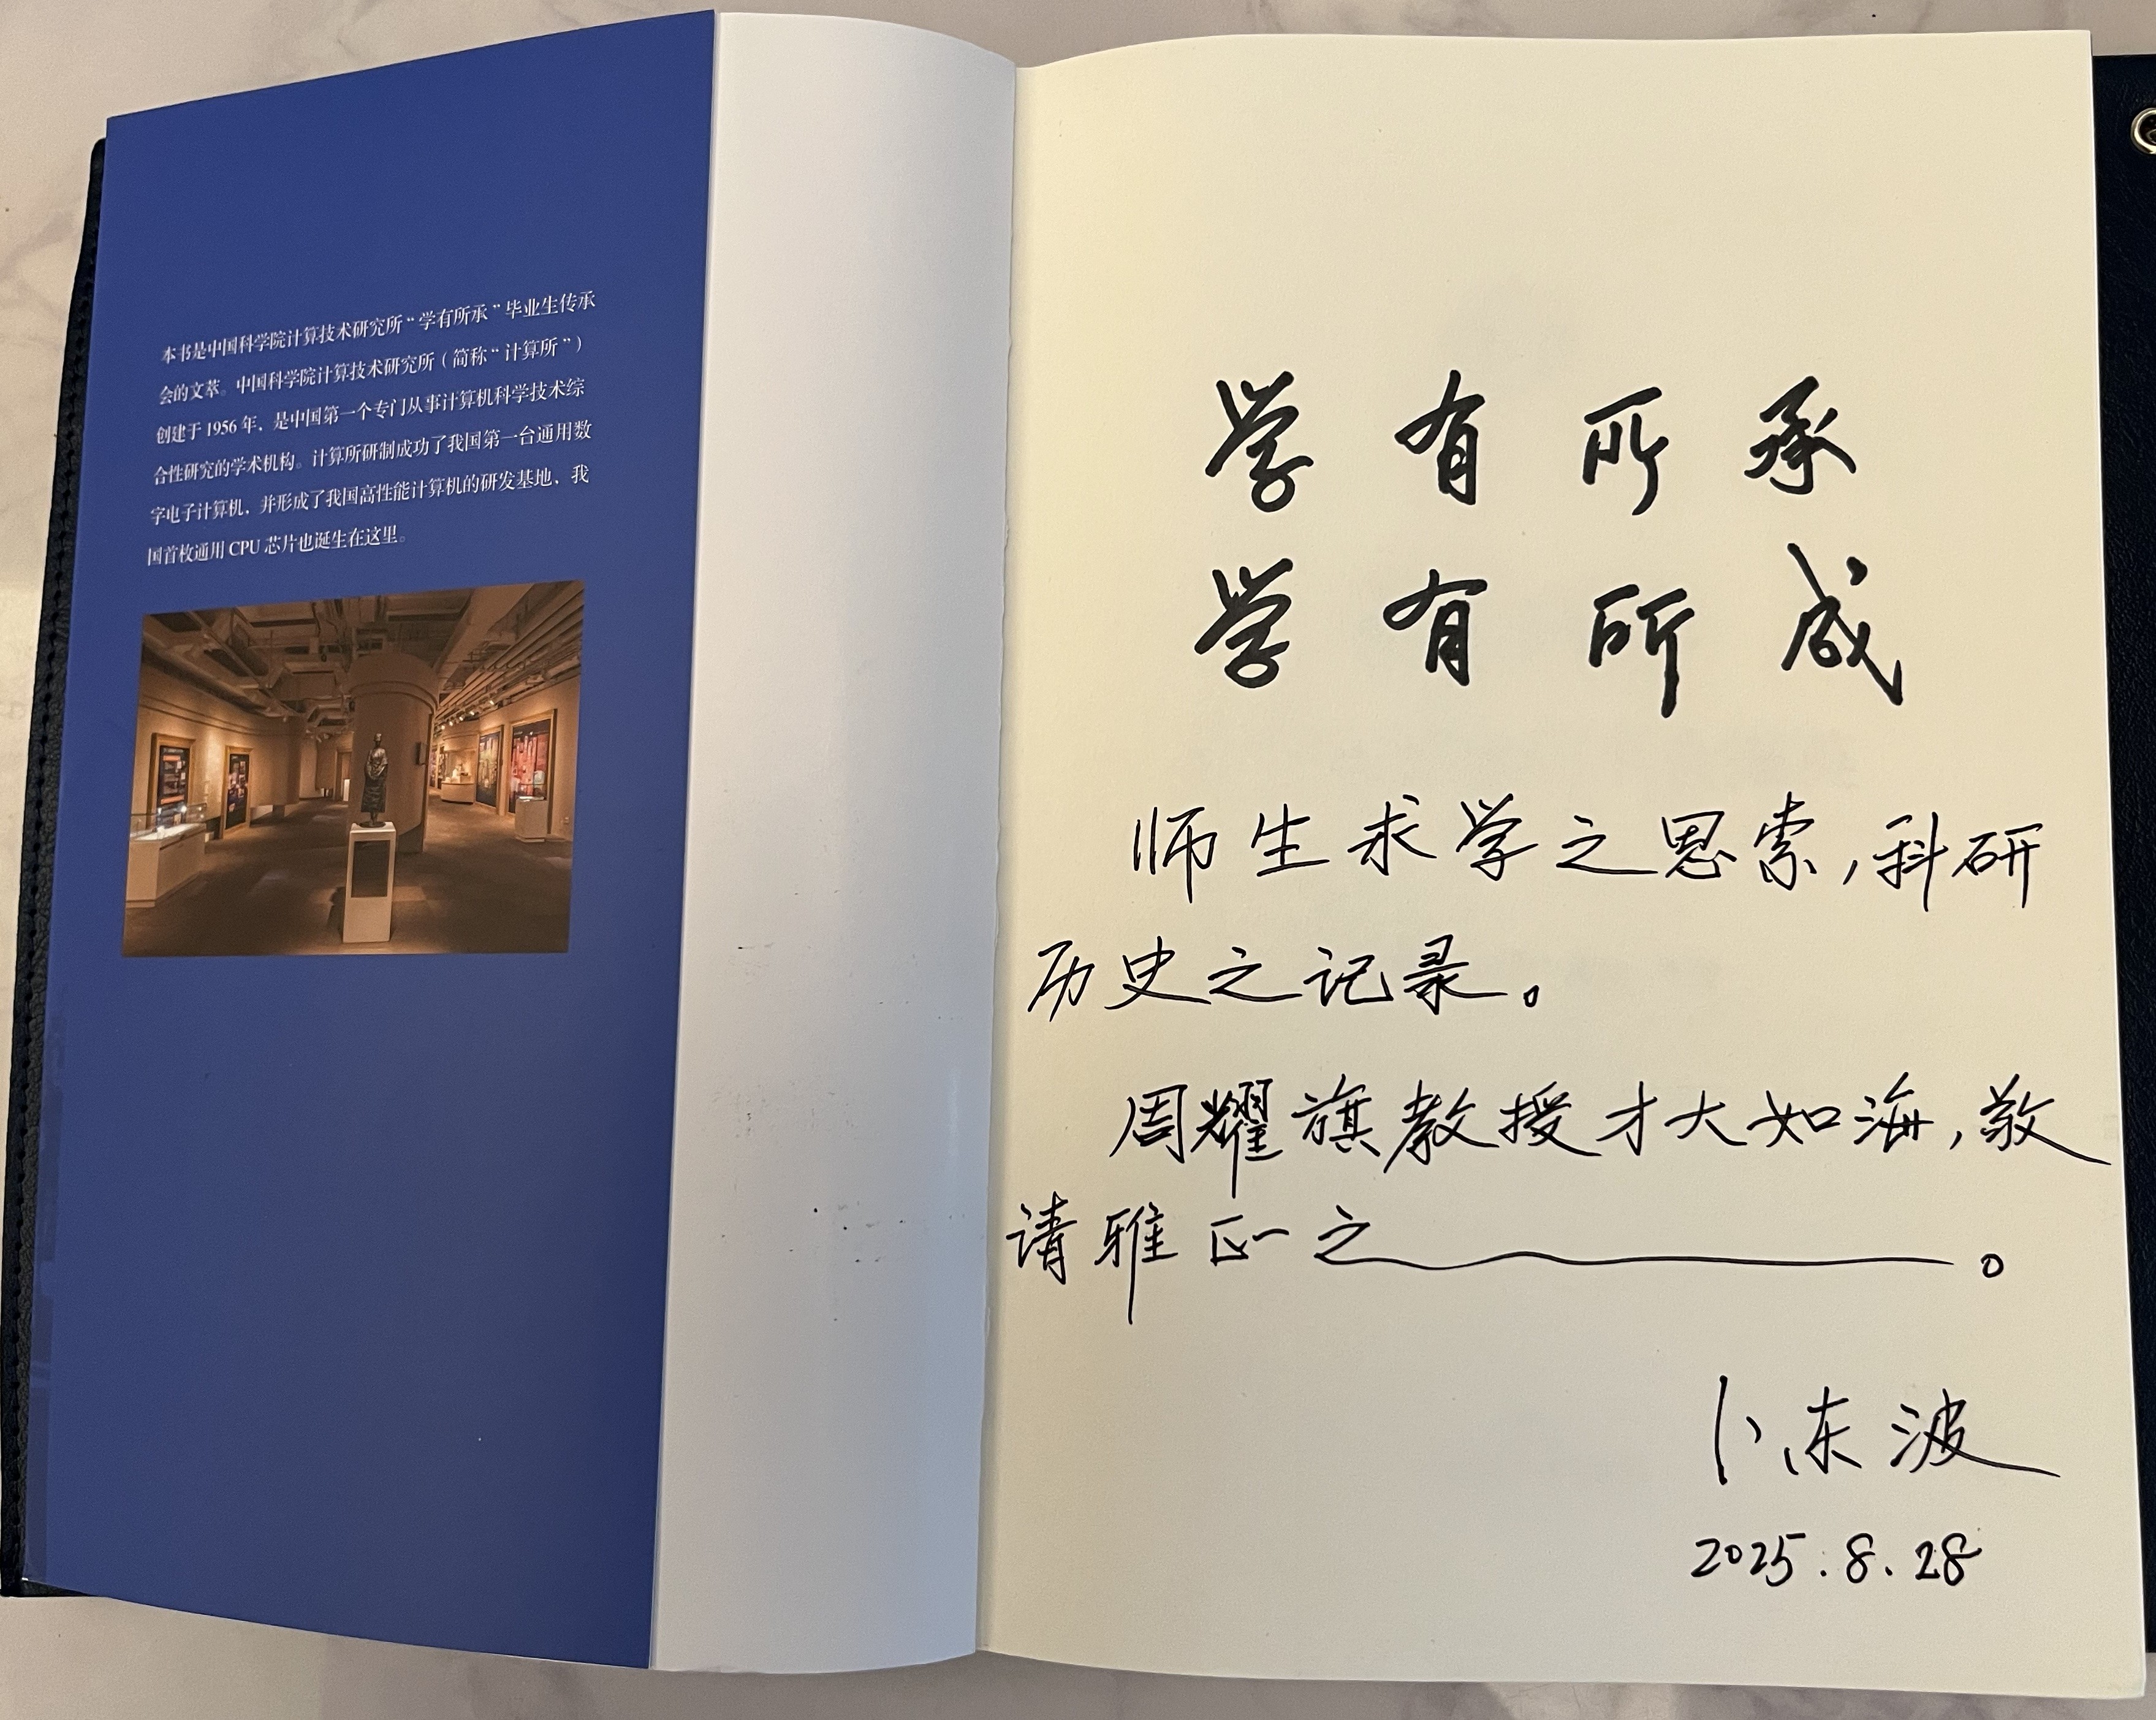 本书是中国科学院计算技术研究所“学有所承”毕业生传承
会的文萃。中国科学院计算技术研究所（简称“计算所”）
创建于1956年，是中国第一个专门从事计算机科学技术综
合性研究的学术机构。计算所研制成功了我国第一台通用数
字电子计算机，并形成了我国高性能计算机的研发基地，我
国首枚通用CPU芯片也诞生在这里。
学有所承
学有所成
师生求学之思索，科研
历史之记录。
周耀旗教授才大如海，敬
请雅正之。
卜东波
2025.8.28